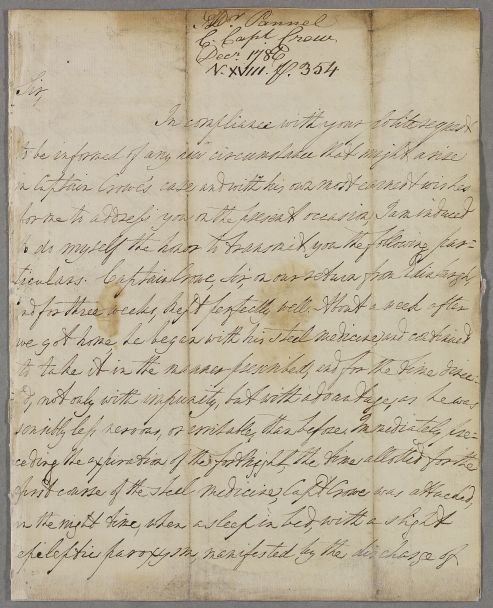 Dr Pannel
C. Capt Crow
Decr. 1786
N. XVIII. p. 354
Sir,
In compliance with your polite request
to be informed of any new circumstance that might arise
in Captain Crowe's case and with his own most earnest wishes
for me to address you on the present occasion, I am induced
to do myself the honor to transmit you the following par=
ticulars. Captain Crowe, Sir, on our return from Edinburgh,
and for three weeks, kept perfectly well. About a week after
we got home he began with his steel medicine, and continued
to take it in the manner prescribed, and for the time direc=
ed, not only with impunity, but with advantage, as he was
sensibly less nervous, or irritable, than before. Immediately, pre=
ceding the expiration of the fortnight, the time allotted for the
first course of the steel medicine, Capt. Crowe was attacked,
in the night time, when asleep in bed, with a slight
epileptic paroxysm, manifested by the discharge of